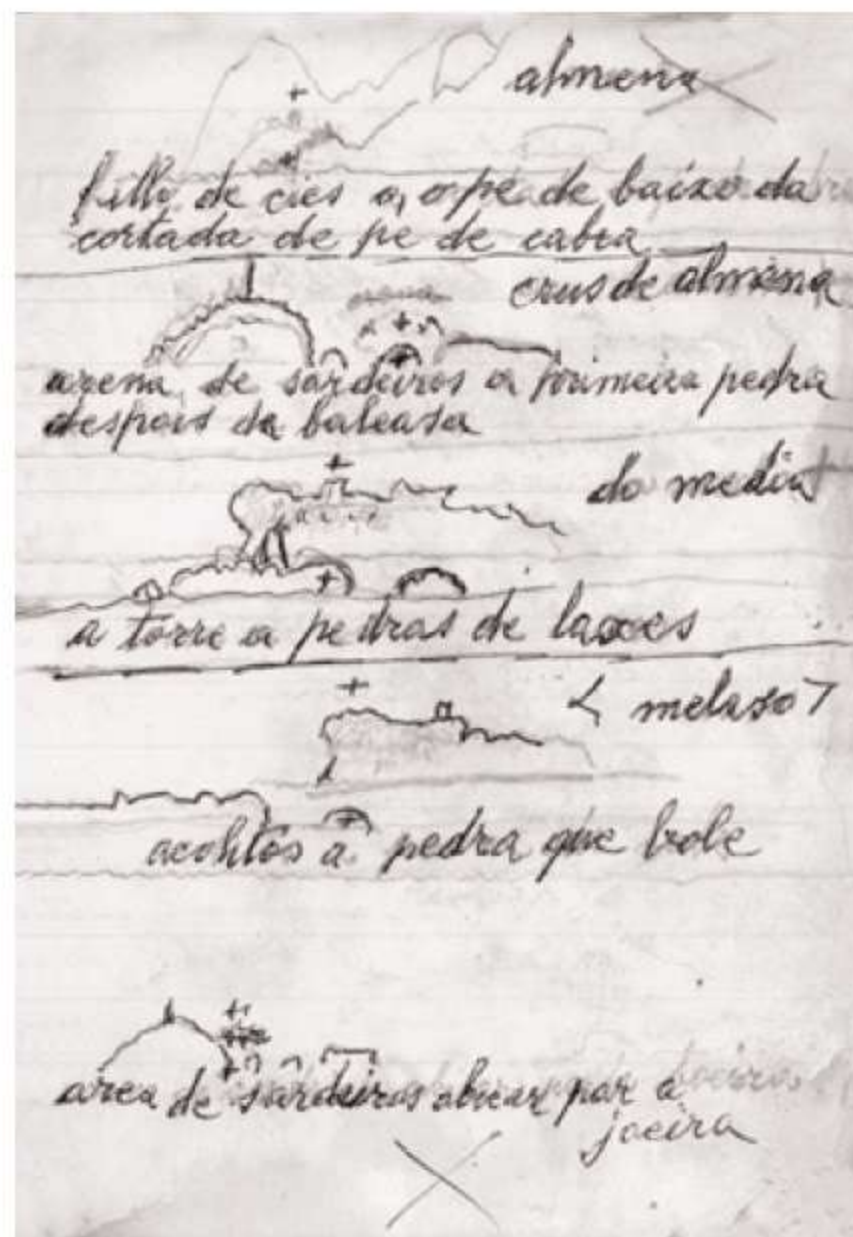 almena
fillo de cies a, o pe de baixo da
cortada de pe de cabra
crus de almena
arena de sardeiros a primeira pedra
despois da baleasa
do mediu
a torre a pedras de laxes
< melaso >
acohtos a pedra que bole
area de sardeiros abrear por a
joeira